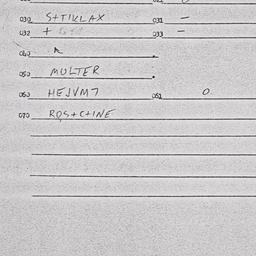 030 S+TIKLAX 031 -
032 + 033 -
040
050 MULTER
060 HEJVM7 051 0.
070 ROS+C+INE